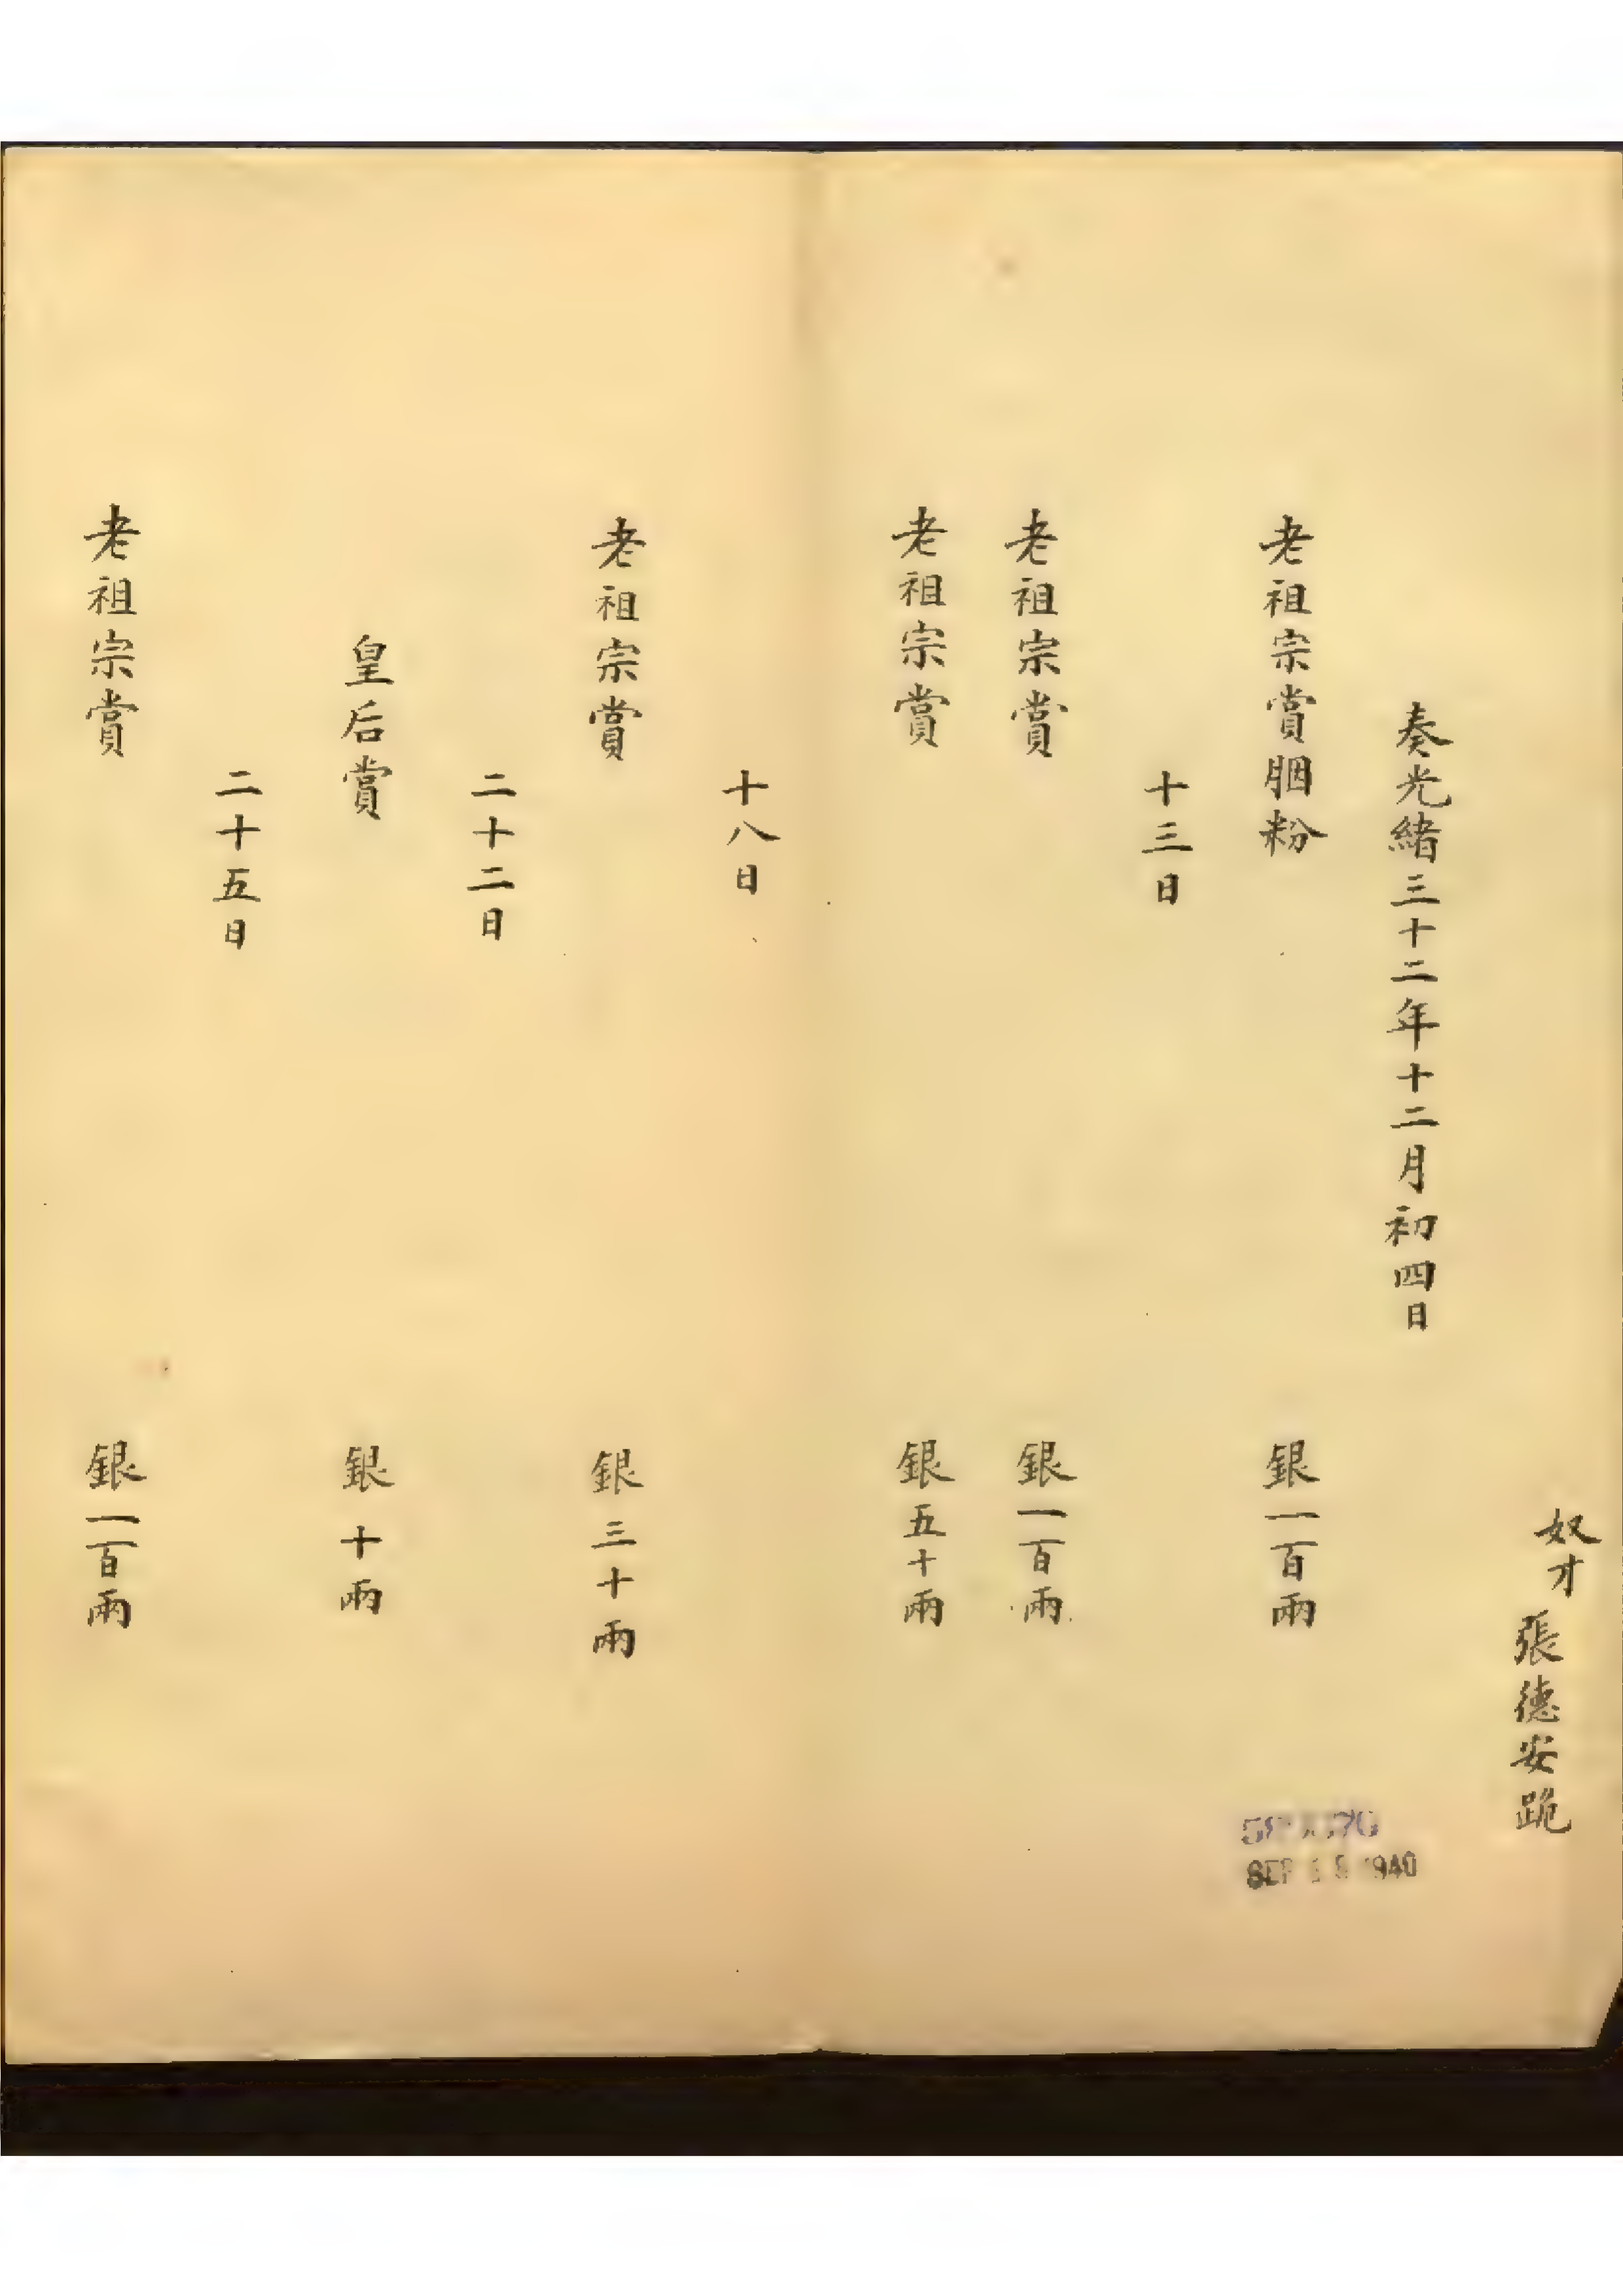 奴才張德安跪
奏光緒三十二年十二月初四日
老祖宗賞胭粉 銀一百兩
十三日
老祖宗賞 銀一百兩
老祖宗賞 銀五十兩
十八日
老祖宗賞 銀三十兩
二十二日
皇后賞 銀十兩
二十五日
老祖宗賞 銀一百兩
SEP 1940